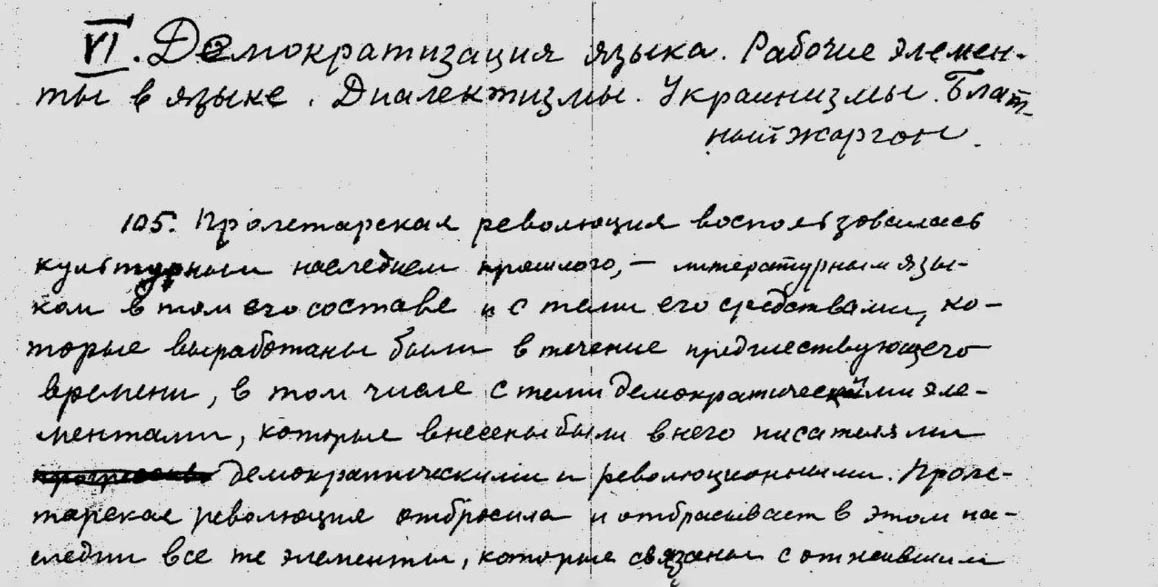 VI. Демократизация языка. Рабочие элемен-
ты в языке. Диалектизмы. Украинизмы. Блат-
ный жаргон.
105. Пролетарская революция воспользовалась
культурным наследием прошлого, – литературным язы-
ком в том его составе и с теми его средствами, ко-
торые выработаны были в течение предшествующего
времени, в том числе с теми демократическими эле-
ментами, которые внесены были в него писателями
демократическими и революционными. Проле-
тарская революция отбросила и отбрасывает в этом на-
следии все те элементы, которые связаны с отжившим